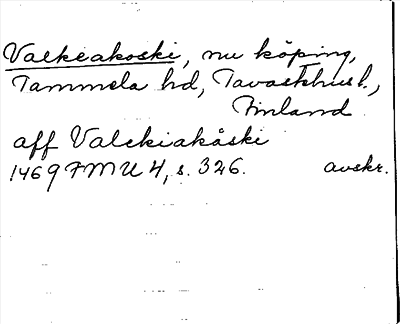 Valkeakoski, nu köping,
Tammela hd, Tavastehus l.,
Finland
aff Valckiakåski
1469 FMU 4, s. 326. avskr.